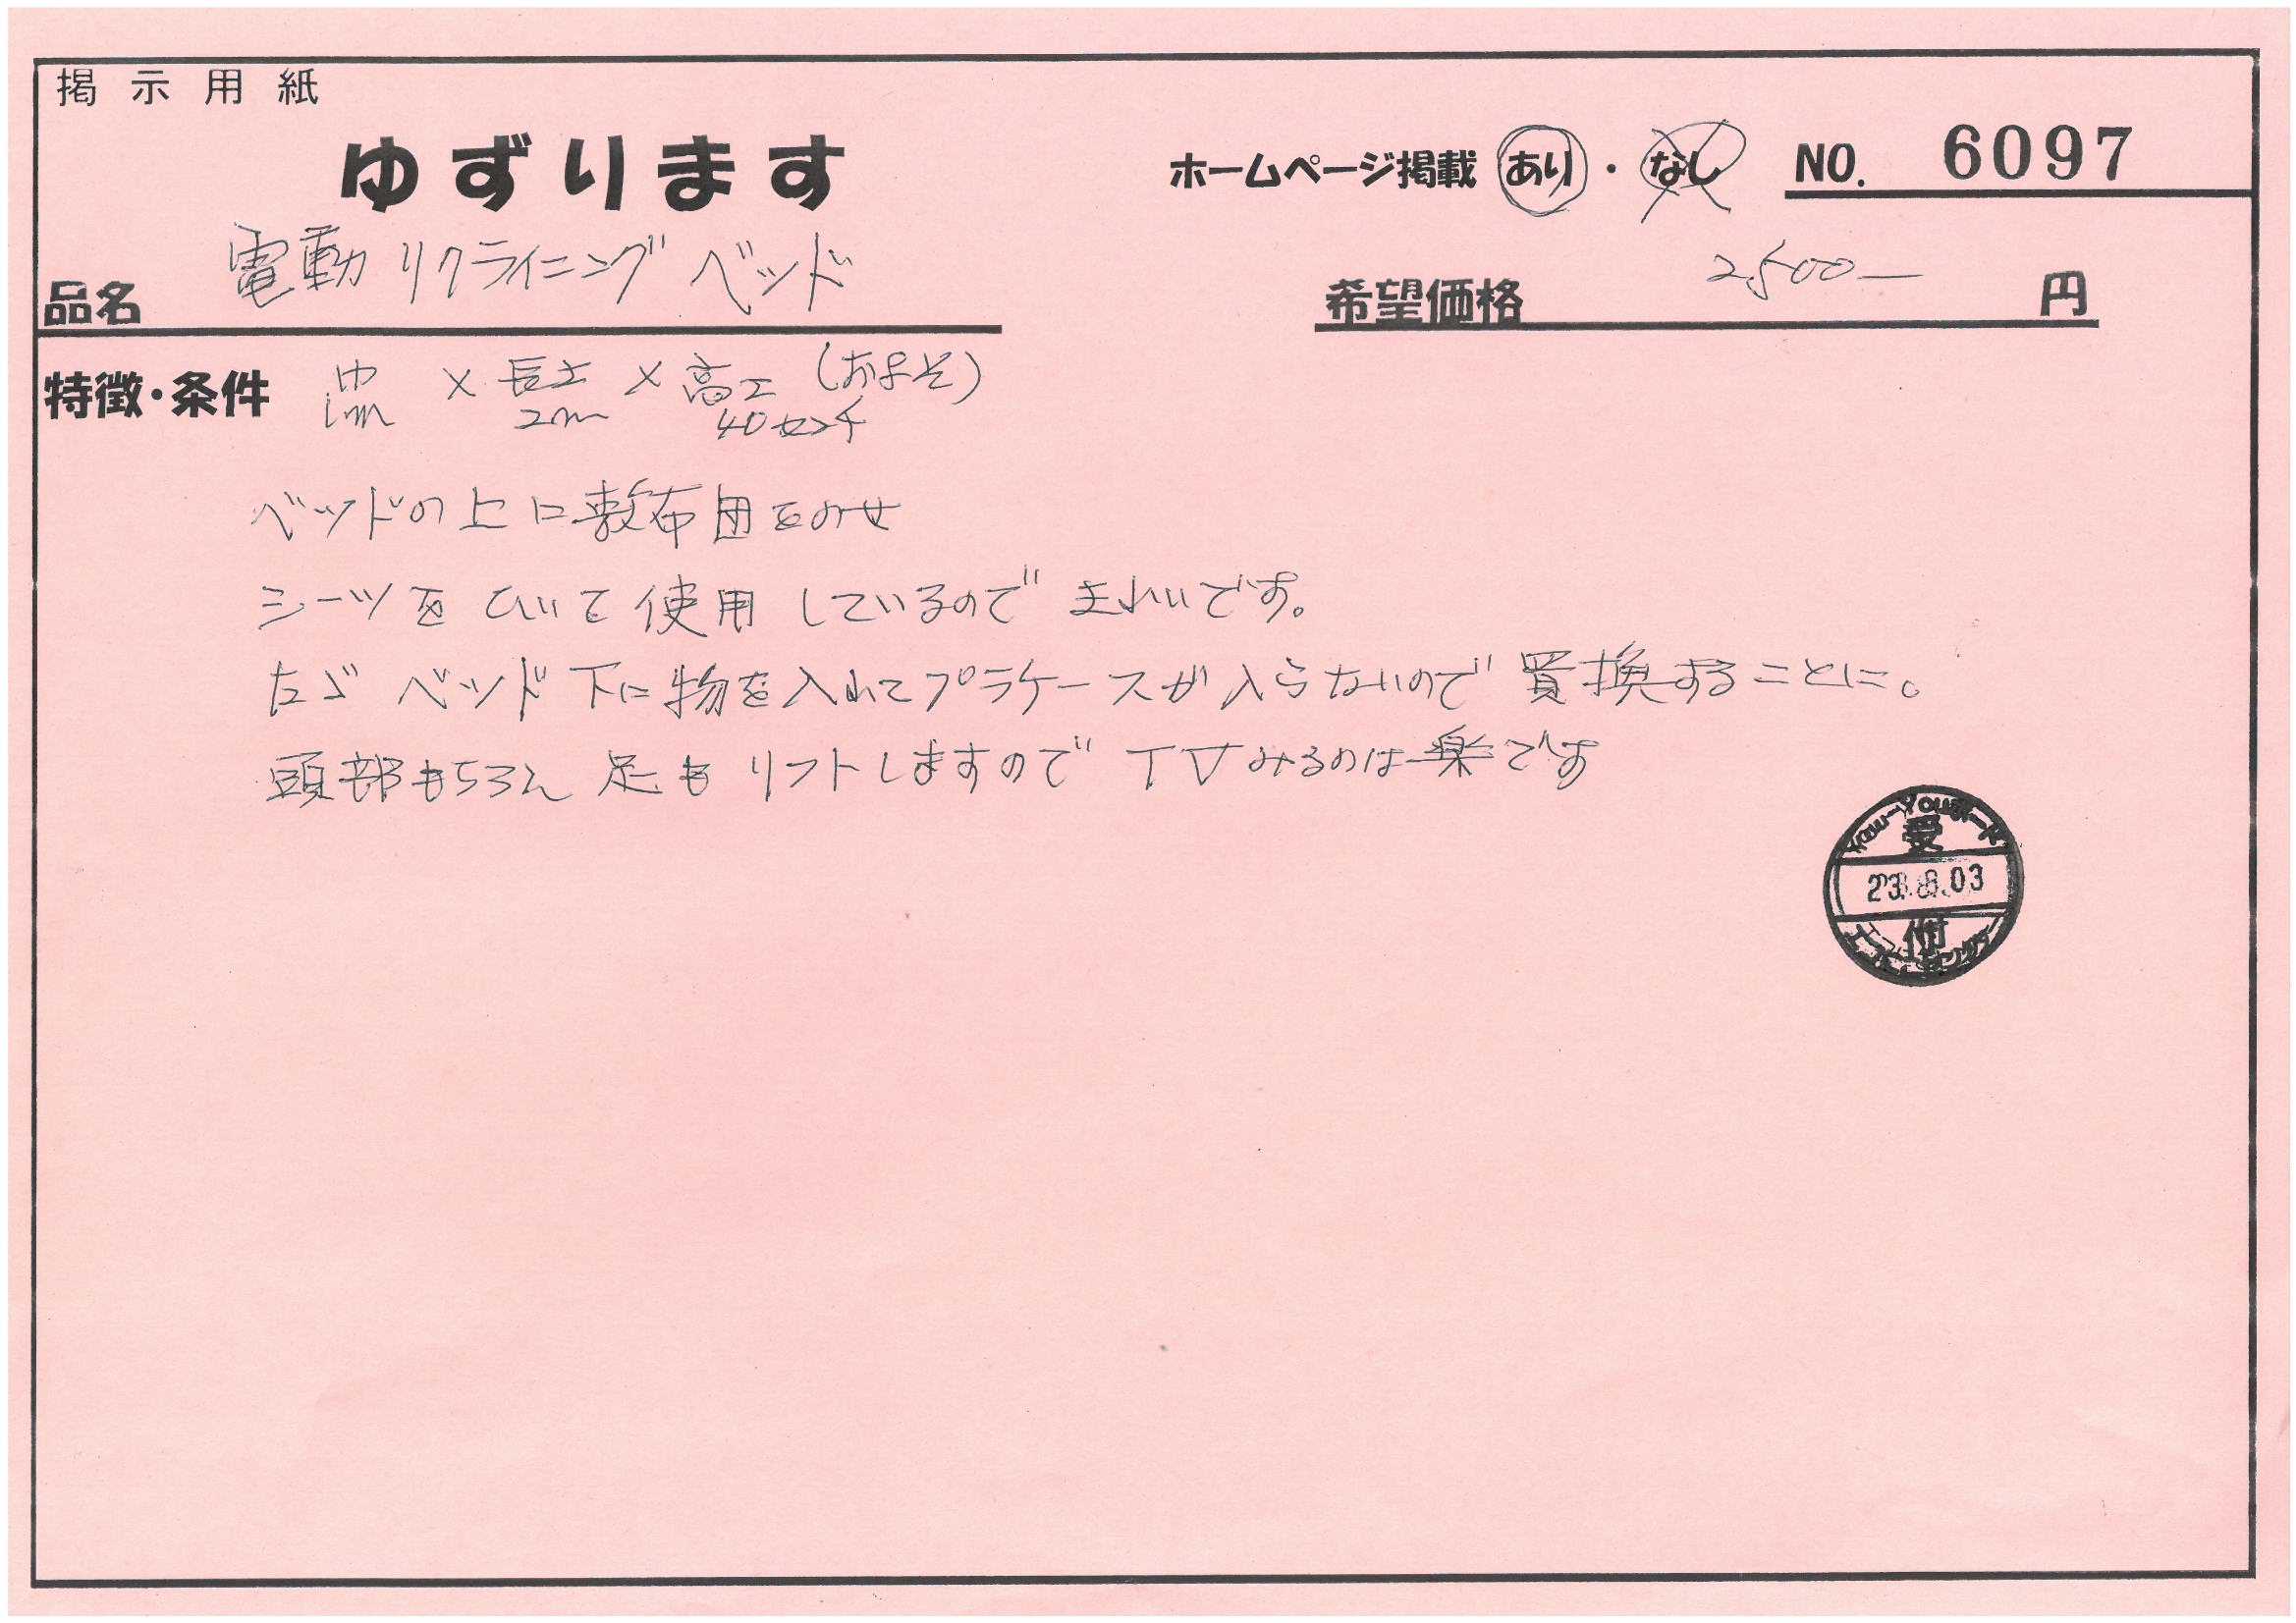 掲示用紙
ゆずります
ホームページ掲載 あり・なし NO. 6097
品名 電動リクライニングベッド
希望価格 2500- 円
特徴・条件 巾 × 長さ × 高さ (およそ)
1m 2m 40センチ
ベッドの上に敷布団をのせ
シーツをひいて使用しているのできれいです。
たゞベッド下に物を入れてプラケースが入らないので買換することに。
頭部もちろん足もリフトしますのでTVみるのは楽です
You-Youボード
受
23.8.03
付